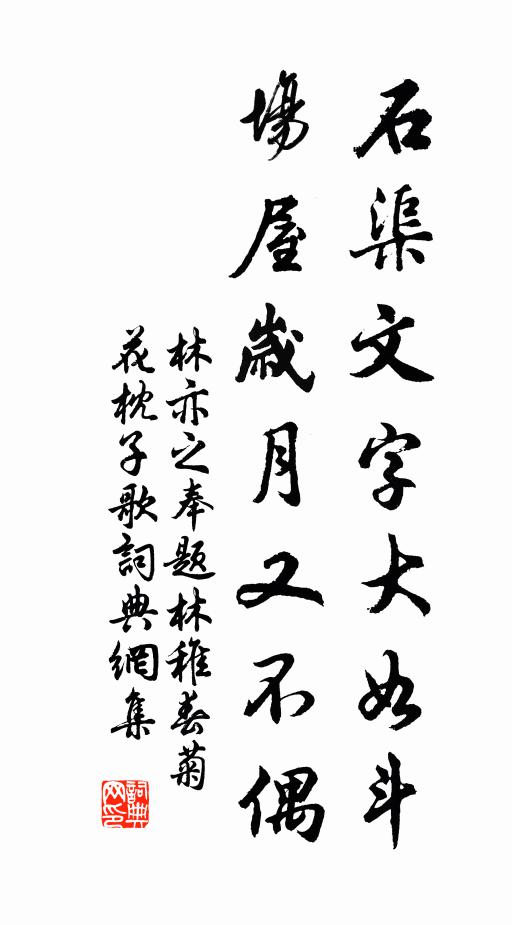 石渠文字大如斗
場屋歲月又不偶
林亦之奉題林稚春菊
花枕子歌詞典網集
詞典
网印